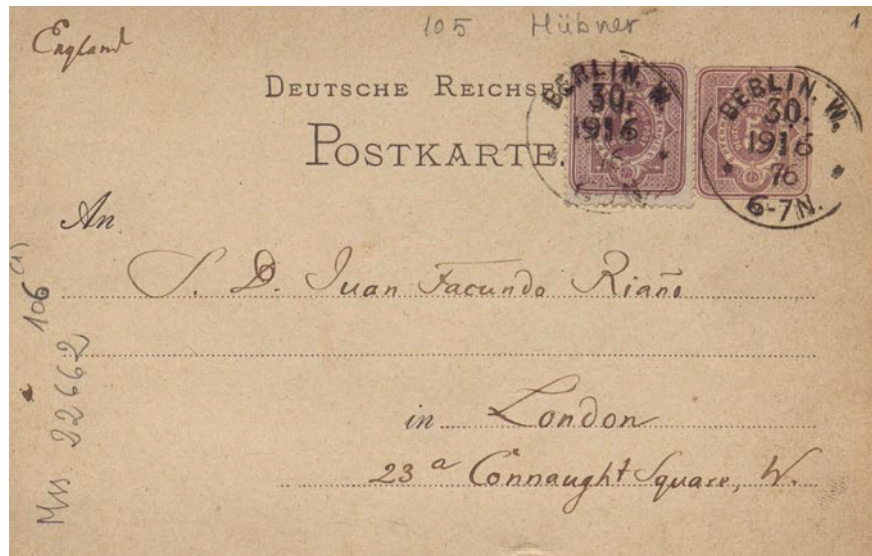 105 Hübner
1
England
DEUTSCHE REICHSP
POSTKARTE.
BERLIN. W.
30.
1916
76
BERLIN. W.
30.
1916
76
6-7N.
An
S. D. Juan Facundo Riaño
in London
23 a Connaught Square, W.
Mss 22662 106 (1)